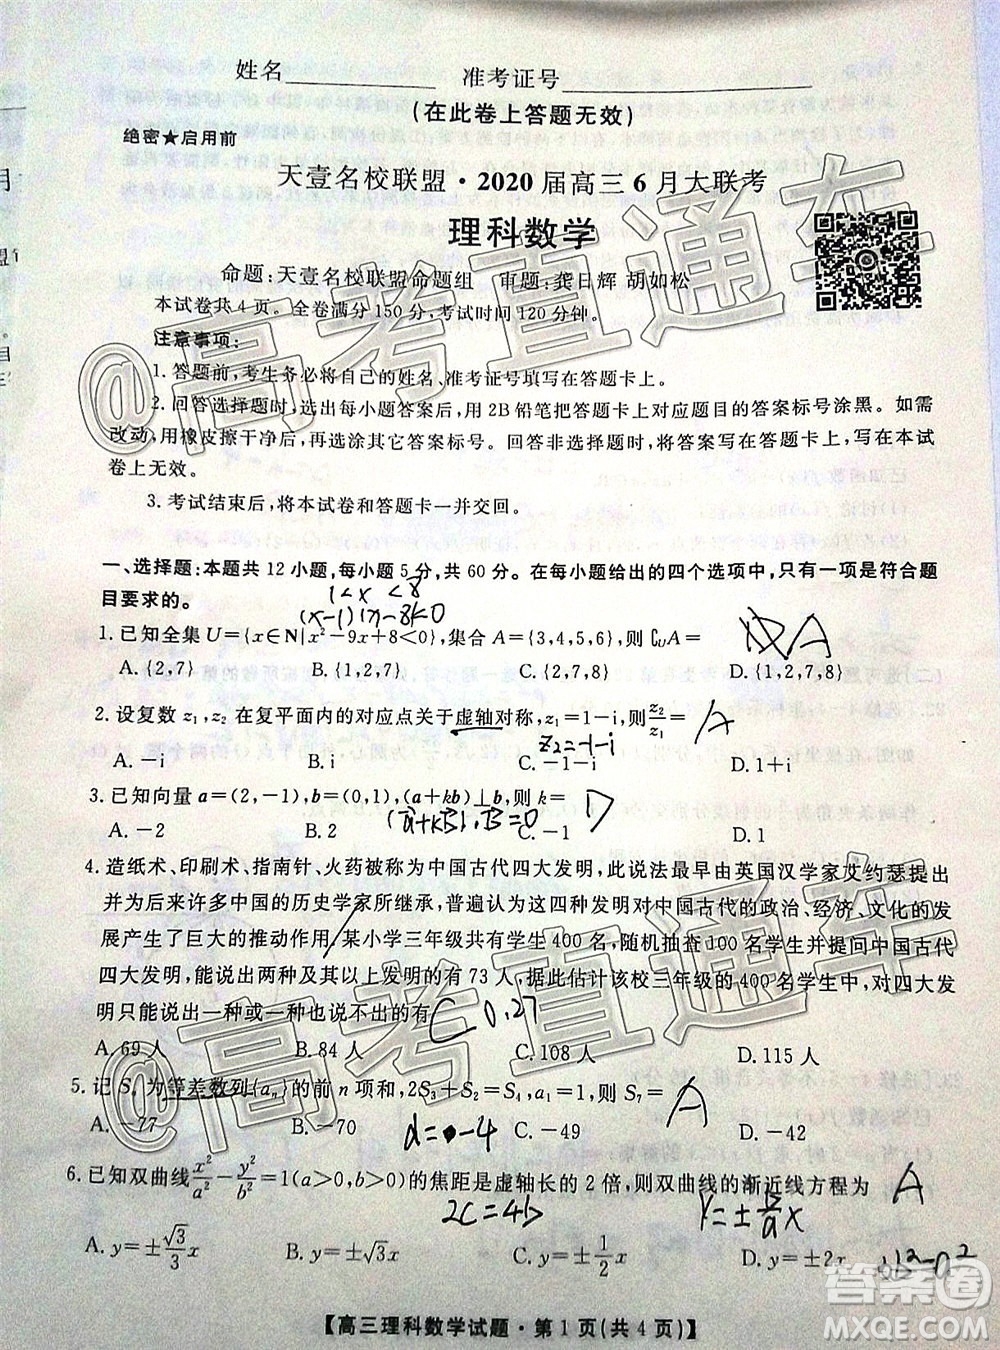 姓名________ 准考证号________________
(在此卷上答题无效)
绝密★启用前
天壹名校联盟·2020届高三6月大联考
理科数学
命题:天壹名校联盟命题组 审题:龚日辉 胡如松
本试卷共4页。全卷满分150分,考试时间120分钟。
注意事项:
1.答题前,考生务必将自己的姓名、准考证号填写在答题卡上。
2.回答选择题时,选出每小题答案后,用2B铅笔把答题卡上对应题目的答案标号涂黑。如需
改动,用橡皮擦干净后,再选涂其它答案标号。回答非选择题时,将答案写在答题卡上,写在本试
卷上无效。
3.考试结束后,将本试卷和答题卡一并交回。
一、选择题:本题共12小题,每小题5分,共60分。在每小题给出的四个选项中,只有一项是符合题
目要求的。
1<x<8
(x-1)(x-8)<0
1.已知全集U={x∈N|x²-9x+8<0},集合A={3,4,5,6},则∁UA= A
A.{2,7} B.{1,2,7} C.{2,7,8} D.{1,2,7,8}
2.设复数z₁,z₂在复平面内的对应点关于虚轴对称,z₁=1-i,则z₂/z₁= A
z₂=-1-i
A.-i B.i C.-1-i D.1+i
3.已知向量a=(2,-1),b=(0,1),(a+kb)⊥b,则k= D
(a+kb)·b=0
A.-2 B.2 C.-1 D.1
4.造纸术、印刷术、指南针、火药被称为中国古代四大发明,此说法最早由英国汉学家艾约瑟提出
并为后来许多中国的历史学家所继承,普遍认为这四种发明对中国古代的政治、经济、文化的发
展产生了巨大的推动作用.某小学三年级共有学生400名,随机抽查100名学生并提问中国古代
四大发明,能说出两种及其以上发明的有73人,据此估计该校三年级的400名学生中,对四大发
明只能说出一种或一种也说不出的有 C 0.27
A.69人 B.84人 C.108人 D.115人
5.记Sₙ为等差数列{aₙ}的前n项和,2S₃+S₂=S₄,a₁=1,则S₇= A
A.-77 B.-70 C.-49 D.-42
d=-4
6.已知双曲线x²/a²-y²/b²=1(a>0,b>0)的焦距是虚轴长的2倍,则双曲线的渐近线方程为 A
2c=4b y=±b/a x
A.y=±√3/3x B.y=±√3x C.y=±1/2x D.y=±2x
【高三理科数学试题·第1页(共4页)】
@高考直通车
@高考直通车
答案圈
MXQE.COM